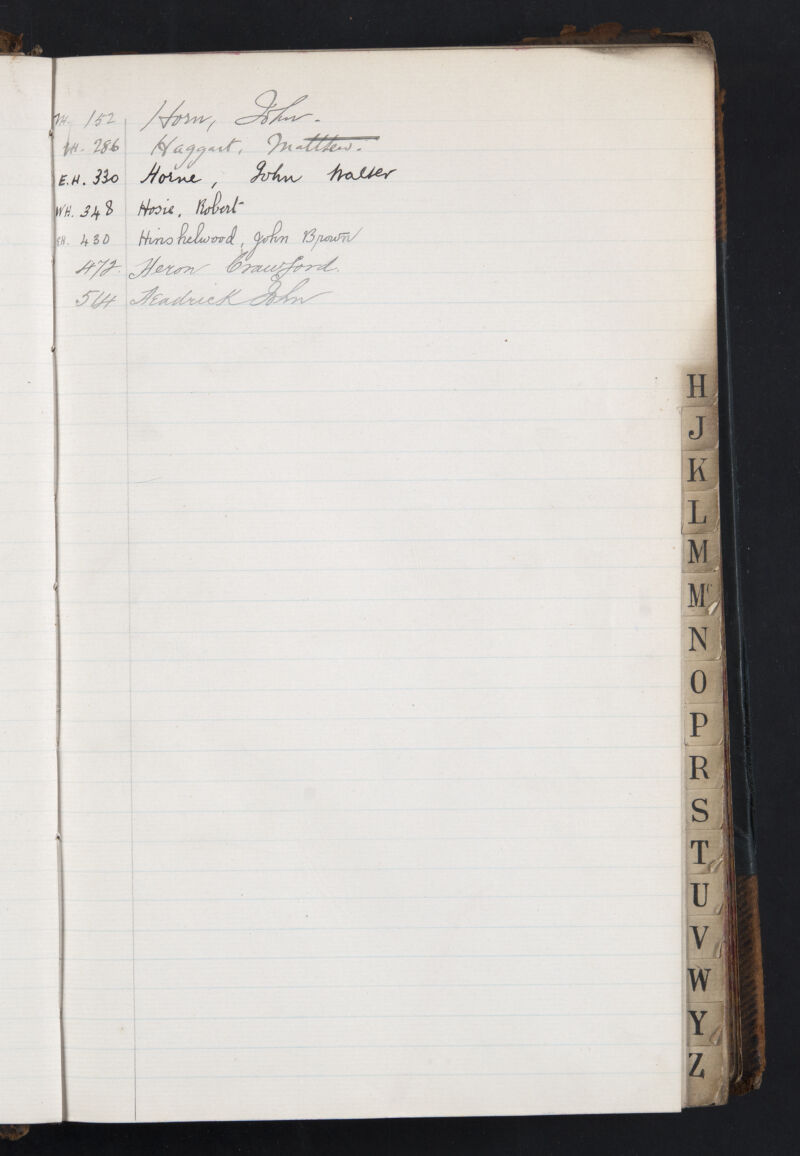 WH. 152 Horn, John.
WH. 286 Haggart, Matthew.
E.H. 330 Horne, John Walter
WH. 348 Hosie, Robert
EH. 430 Hinshelwood, John Brown
472. Heron Crawford.
514 Headrick John
H
J
K
L
M
Mc
N
O
P
R
S
T
U
V
W
Y
Z